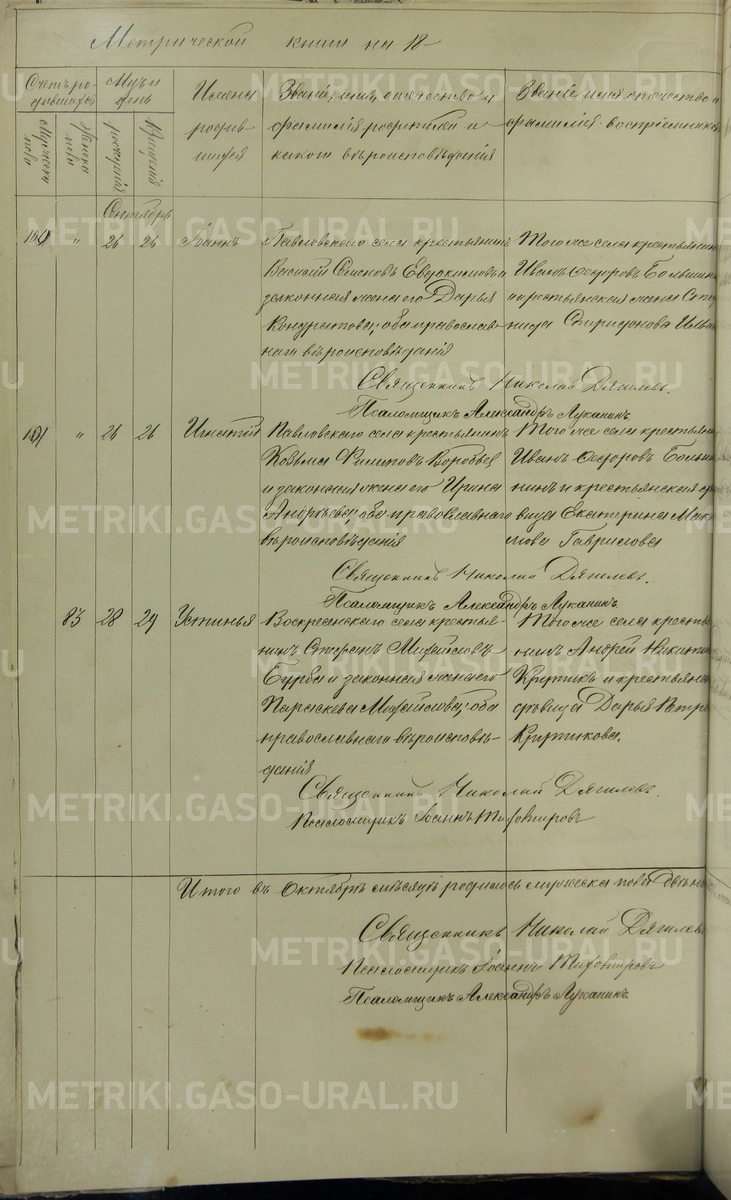 Метрической книги на 18
Счетъ ро-
дившихся
Мѣс. и
день
Имена
родив-
шихся
Званіе, имя, отечество и
фамилія родителей и
какого вѣроисповѣданія
Званіе имя, отечество и
фамилія воспріемниковъ
Мужеска
пола
Женска
пола
рожденія
крещенія
Октябрь
26 26 Іоаннъ
Павловскаго села крестьянинъ
Василій Семеновъ Евдокимовъ и
законная жена его Дарья
Кондратова; оба православ-
наго вѣроисповѣданія
Того же села крестьянин
Иванъ Ѳедоровъ Большин
и крестьянская жена Сте
нида Спиридонова
Священникъ Николай Дягилевъ.
Псаломщикъ Александръ Луканинъ
101 " 26 26 Игнатій
Павловскаго села крестьянинъ
Козьма Филиповъ Воробьев
и законная жена его Ирина
Андрѣева; оба православнаго
вѣроисповѣданія
Того же села крестьяни
Иванъ Ѳедоровъ Больш
нинъ и крестьянская
вица Екатерина Мак
мова Гаврилова
Священникъ Николай Дягилевъ.
Псаломщикъ Александръ Луканинъ.
83 28 29 Устинья
Воскресенскаго села крестья-
нинъ Стефанъ Михайловъ
Бурба и законная жена его
Параскева Михайлова; оба
православнаго вѣроисповѣ-
данія
Того же села кресть
нинъ Андрей Никитин
Крутикъ и крестьянс
дѣвица Дарья Петро
Крутикова.
Священникъ Николай Дягилевъ.
Псаломщикъ Іоаннъ Тихомировъ
Итого въ Октябрѣ мѣсяцѣ родилось мужеска пола двѣна
Священникъ Николай Дягилевъ
Псаломщикъ Іоаннъ Тихомировъ
Псаломщикъ Александръ Луканинъ.
METRIKI.GASO-URAL.RU